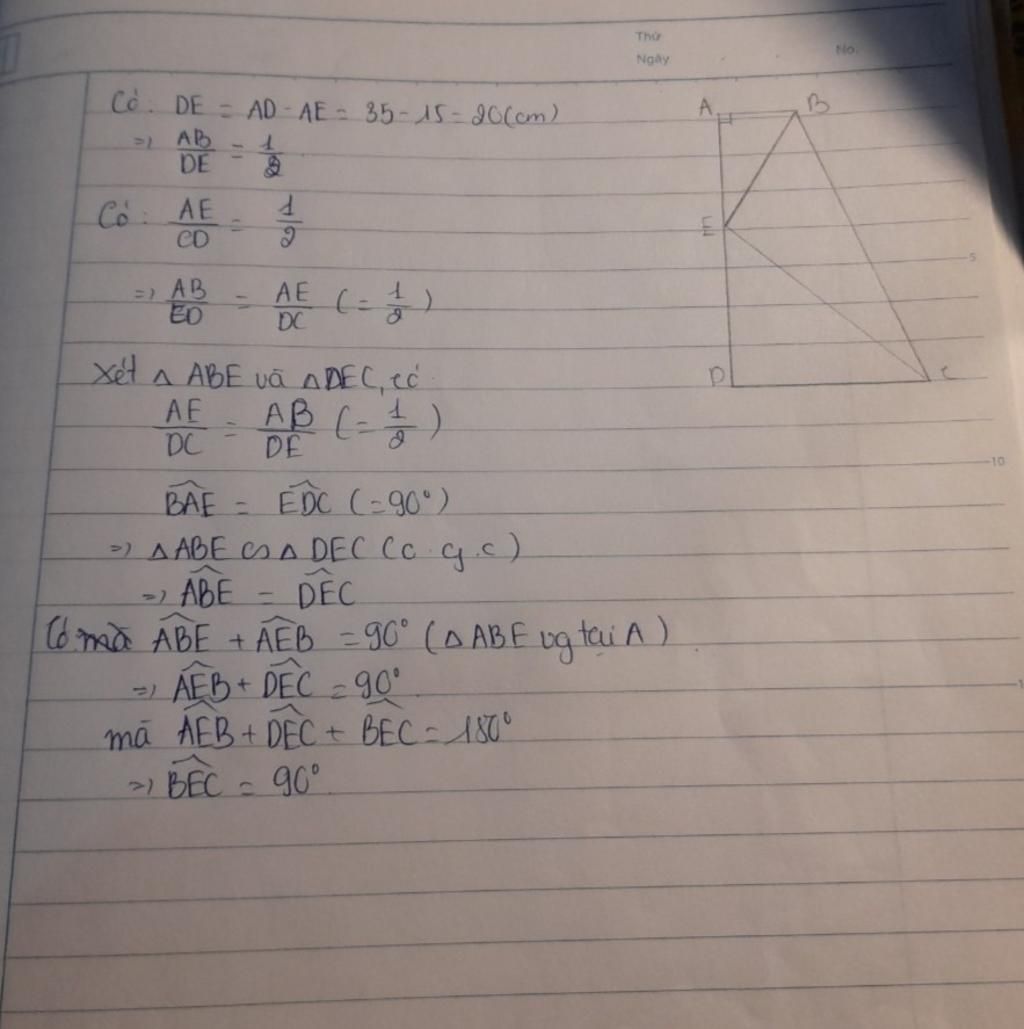 Thứ
Ngày
No.
Có: DE = AD - AE = 35 - 15 = 20 (cm)
=> AB/DE = 1/2
Có: AE/CD = 1/2
=> AB/ED = AE/DC (= 1/2)
Xét △ ABE và △DEC, có
AE/DC = AB/DE (= 1/2)
BAE^ = EDC^ (= 90°)
=> △ABE ∽ △ DEC (c.g.c)
=> ABE^ = DEC^
Có mà ABE^ + AEB^ = 90° (△ ABE vg tại A)
=> AEB^ + DEC^ = 90°
mà AEB^ + DEC^ + BEC^ = 180°
=> BEC^ = 90°
A
B
E
D
C
5
10